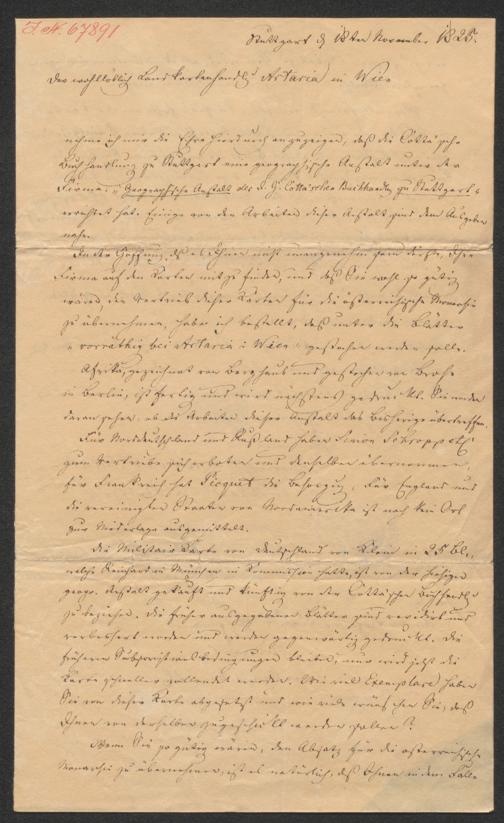 I. N. 67891
Stuttgart d 18ten November 1825.
Der wohllöblich Landkartenhandlg Artaria in Wien
nehme ich mir die Ehre hierdurch anzuzeigen, daß die Cotta'sche
Buchhandlung zu Stuttgart eine geographische Anstalt unter der
Firma: "Geographische Anstalt der J. G. Cotta'schen Buchhandlg zu Stuttgart"
errichtet hat. Einige von den Arbeiten dieser Anstalt sind dem Ausgeben
nahe.
In der Hoffnung, daß es Ihnen nicht unangenehm seyn dürfte, Ihre
Firma auf den Karten mit zu finden, und daß Sie wohl so gütig
wären, den Vertrieb dieser Karten für die österreichische Monarchie
zu übernehmen, habe ich bestellt, daß unter die Blätter
"vorräthig bei Artaria in Wien" gestochen werden solle.
Afrika, gezeichnet von Berghaus und gestochen von Brose
in Berlin, ist fertig und wird nächstens gedruckt. Sie werden
daran sehen, ob die Arbeiten dieser Anstalt das Bisherige übertreffen.
Für Norddeutschland und Rußland haben Simon Schropp et C
zum Vertriebe sich erboten und denselben übernommen,
für Frankreich hat Picquet die Besorgung. Für England und
die vereinigten Staaten von Nordamerika ist noch kein Ort
zur Niederlage ausgemittelt.
Die Militair Karte von Deutschland von Klein in 25 Bl.,
welche Reinhart in München in Kommission hatte, ist von der hiesigen
geogr. Anstalt gekauft und künftig von der Cotta'schen Buchhandlg
zu beziehen. Die früher ausgegebenen Blätter sind revidirt und
verbessert worden und werden gegenwärtig gedruckt. Die
früheren Subscriptionsbedingungen bleiben, nur wird jetzt die
Karte schneller vollendet werden. Wie viel Exemplare haben
Sie von dieser Karte abgesetzt und wie viele wünschen Sie, daß
Ihnen von derselben zugeschickt werden sollen?
Wenn Sie so gütig wären, den Absatz für die österreichische
Monarchie zu übernehmen, ist es natürlich, daß Ihnen in dem Falle